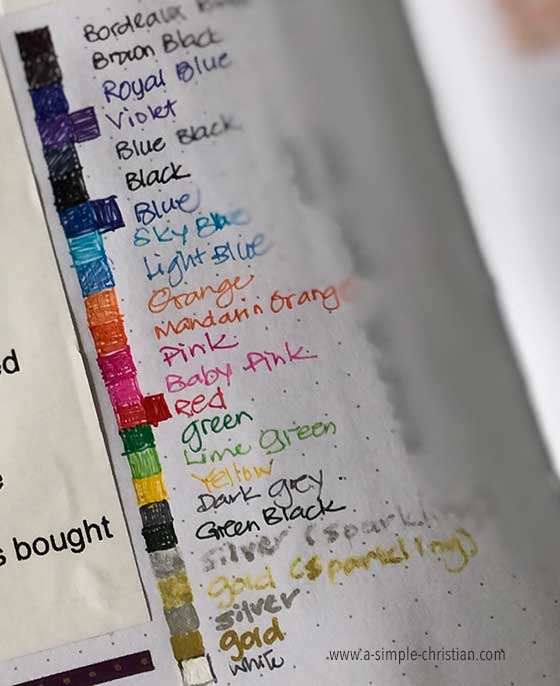 Bordeaux
Brown Black
Royal Blue
Violet
Blue Black
Black
Blue
Sky Blue
Light Blue
Orange
Mandarin Orange
Pink
Baby Pink
Red
green
Lime Green
Yellow
Dark grey
Green Black
silver (sparkling
gold (sparkling)
silver
gold
white
s bought
www.a-simple-christian.com